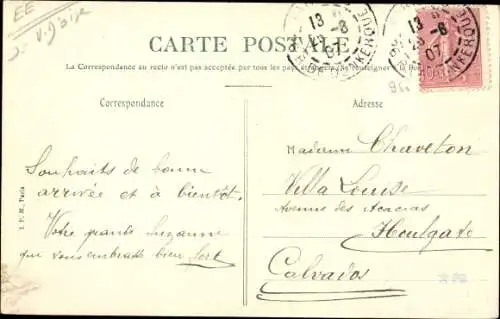 EE
CARTE POSTALE
La Correspondance au recto n'est pas acceptée par tous les pays étrangers (Se renseigner à la Poste)
Correspondance
Adresse
13
23-8
07
DUNKERQUE
13
23-8
07
DUNKERQUE
Souhaits de bonne
arrivée et à bientôt.
Votre grande Suzanne
qui vous embrasse bien fort
Madame Chaveton
Villa Louise
Avenue des Acacias
Houlgate
Calvados
I. P. M., Paris